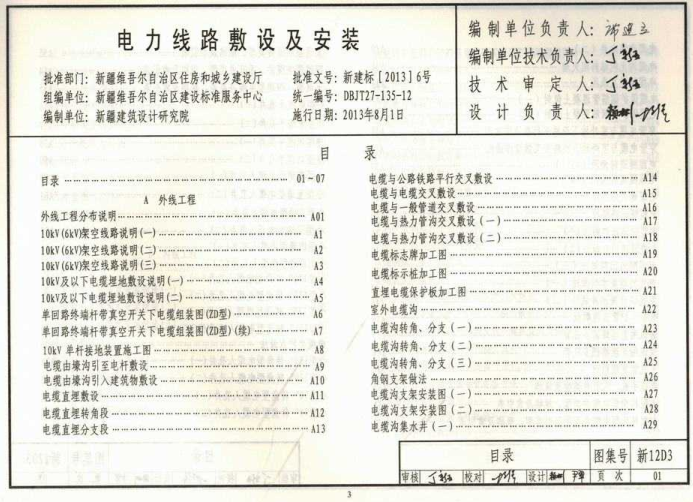 电力线路敷设及安装
批准部门：新疆维吾尔自治区住房和城乡建设厅 批准文号：新建标[2013]6号
组编单位：新疆维吾尔自治区建设标准服务中心 统一编号：DBJT27-135-12
编制单位：新疆建筑设计研究院 施行日期：2013年8月1日
编制单位负责人：
编制单位技术负责人：
技术审定人：
设计负责人：
目 录
目录 01~07
A 外线工程
外线工程分布说明 A01
10kV(6kV)架空线路说明(一) A1
10kV(6kV)架空线路说明(二) A2
10kV(6kV)架空线路说明(三) A3
10kV及以下电缆埋地敷设说明(一) A4
10kV及以下电缆埋地敷设说明(二) A5
单回路终端杆带真空开关下电缆组装图(ZD型) A6
单回路终端杆带真空开关下电缆组装图(ZD型)(续) A7
10kV 单杆接地装置施工图 A8
电缆由壕沟引至电杆敷设 A9
电缆由壕沟引入建筑物敷设 A10
电缆直埋敷设 A11
电缆直埋转角段 A12
电缆直埋分支段 A13
电缆与公路铁路平行交叉敷设 A14
电缆与电缆交叉敷设 A15
电缆与一般管道交叉敷设 A16
电缆与热力管沟交叉敷设(一) A17
电缆与热力管沟交叉敷设(二) A18
电缆标志牌加工图 A19
电缆标示桩加工图 A20
直埋电缆保护板加工图 A21
室外电缆沟 A22
电缆沟转角、分支(一) A23
电缆沟转角、分支(二) A24
电缆沟转角、分支(三) A25
角钢支架做法 A26
电缆沟支架安装图(一) A27
电缆沟支架安装图(二) A28
电缆沟集水井(一) A29
目录 图集号 新12D3
审核 校对 设计 页次 01
3